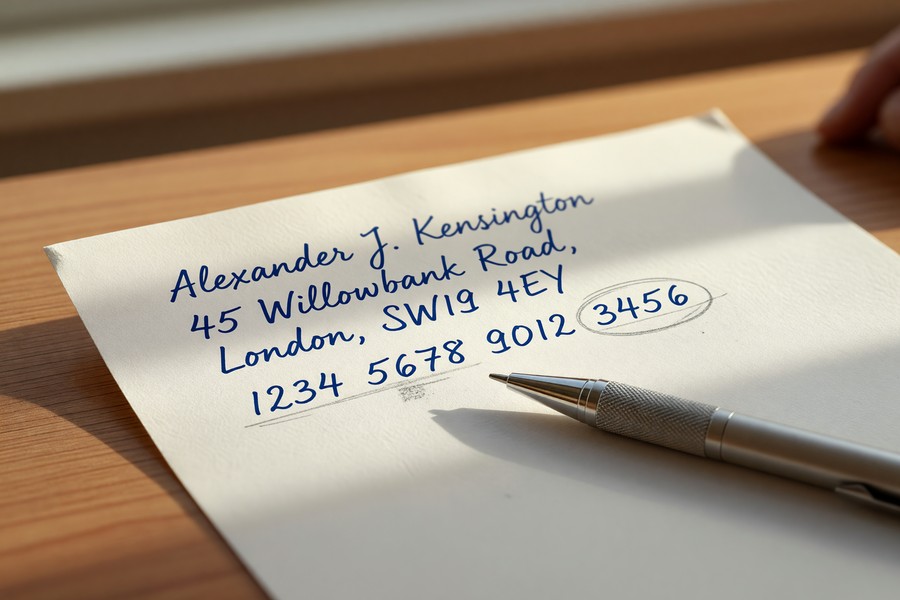 Alexander J. Kensington
45 Willowbank Road,
London, SW19 4EY
1234 5678 9012 3456